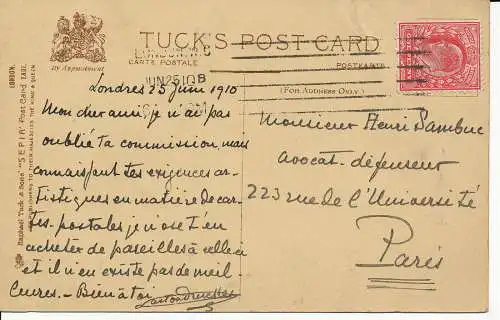 TUCK'S POST CARD
CARTE POSTALE
POSTKARTE
(FOR ADDRESS ONLY.)
By Appointment
LONDON. W.C
JUN 25 10 B
Raphael Tuck & Sons' "SEPIA" Post Card
TO THEIR MAJESTIES THE KING & QUEEN
Londres 25 Juin 1910
Mon cher ami, je n'ai pas
oublié ta commission, mais
connaissant tes exigences ar-
tistiques en matière de car-
tes-postales je n'ose t'en
acheter de pareilles à celle ci
et il n'en existe pas de meil-
leures. – Bien à toi
Monsieur Henri Sambuc
avocat-défenseur
223 rue de l'Université
Paris